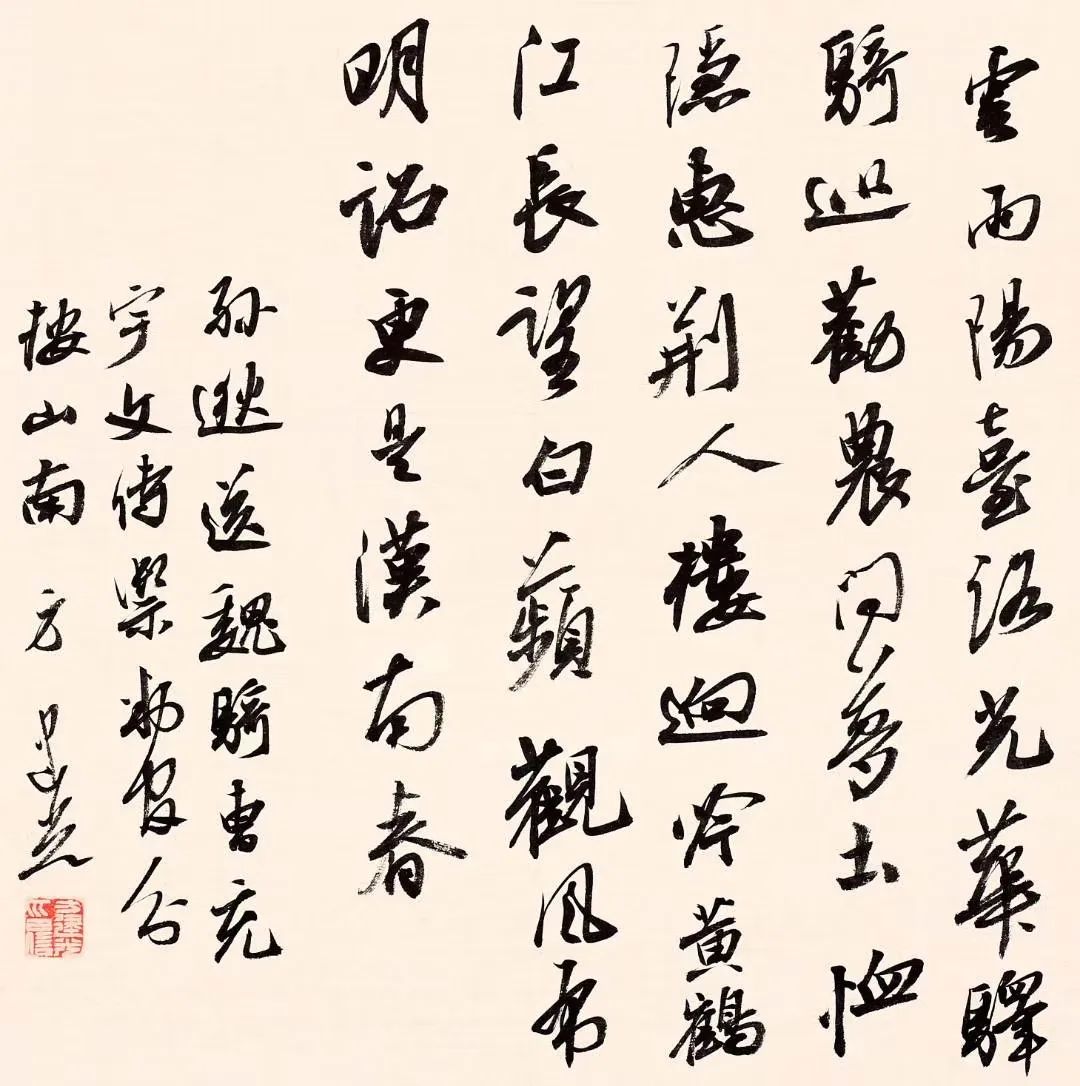 雲雨陽臺路光華驛
騎巡勸農開夢土恤
隱惠荆人樓迥吟黄鶴
江長望白蘋觀風布
明詔更是漢南春
孫逖送魏騎曹充
宇文侍禦判官分
按山南 方建光